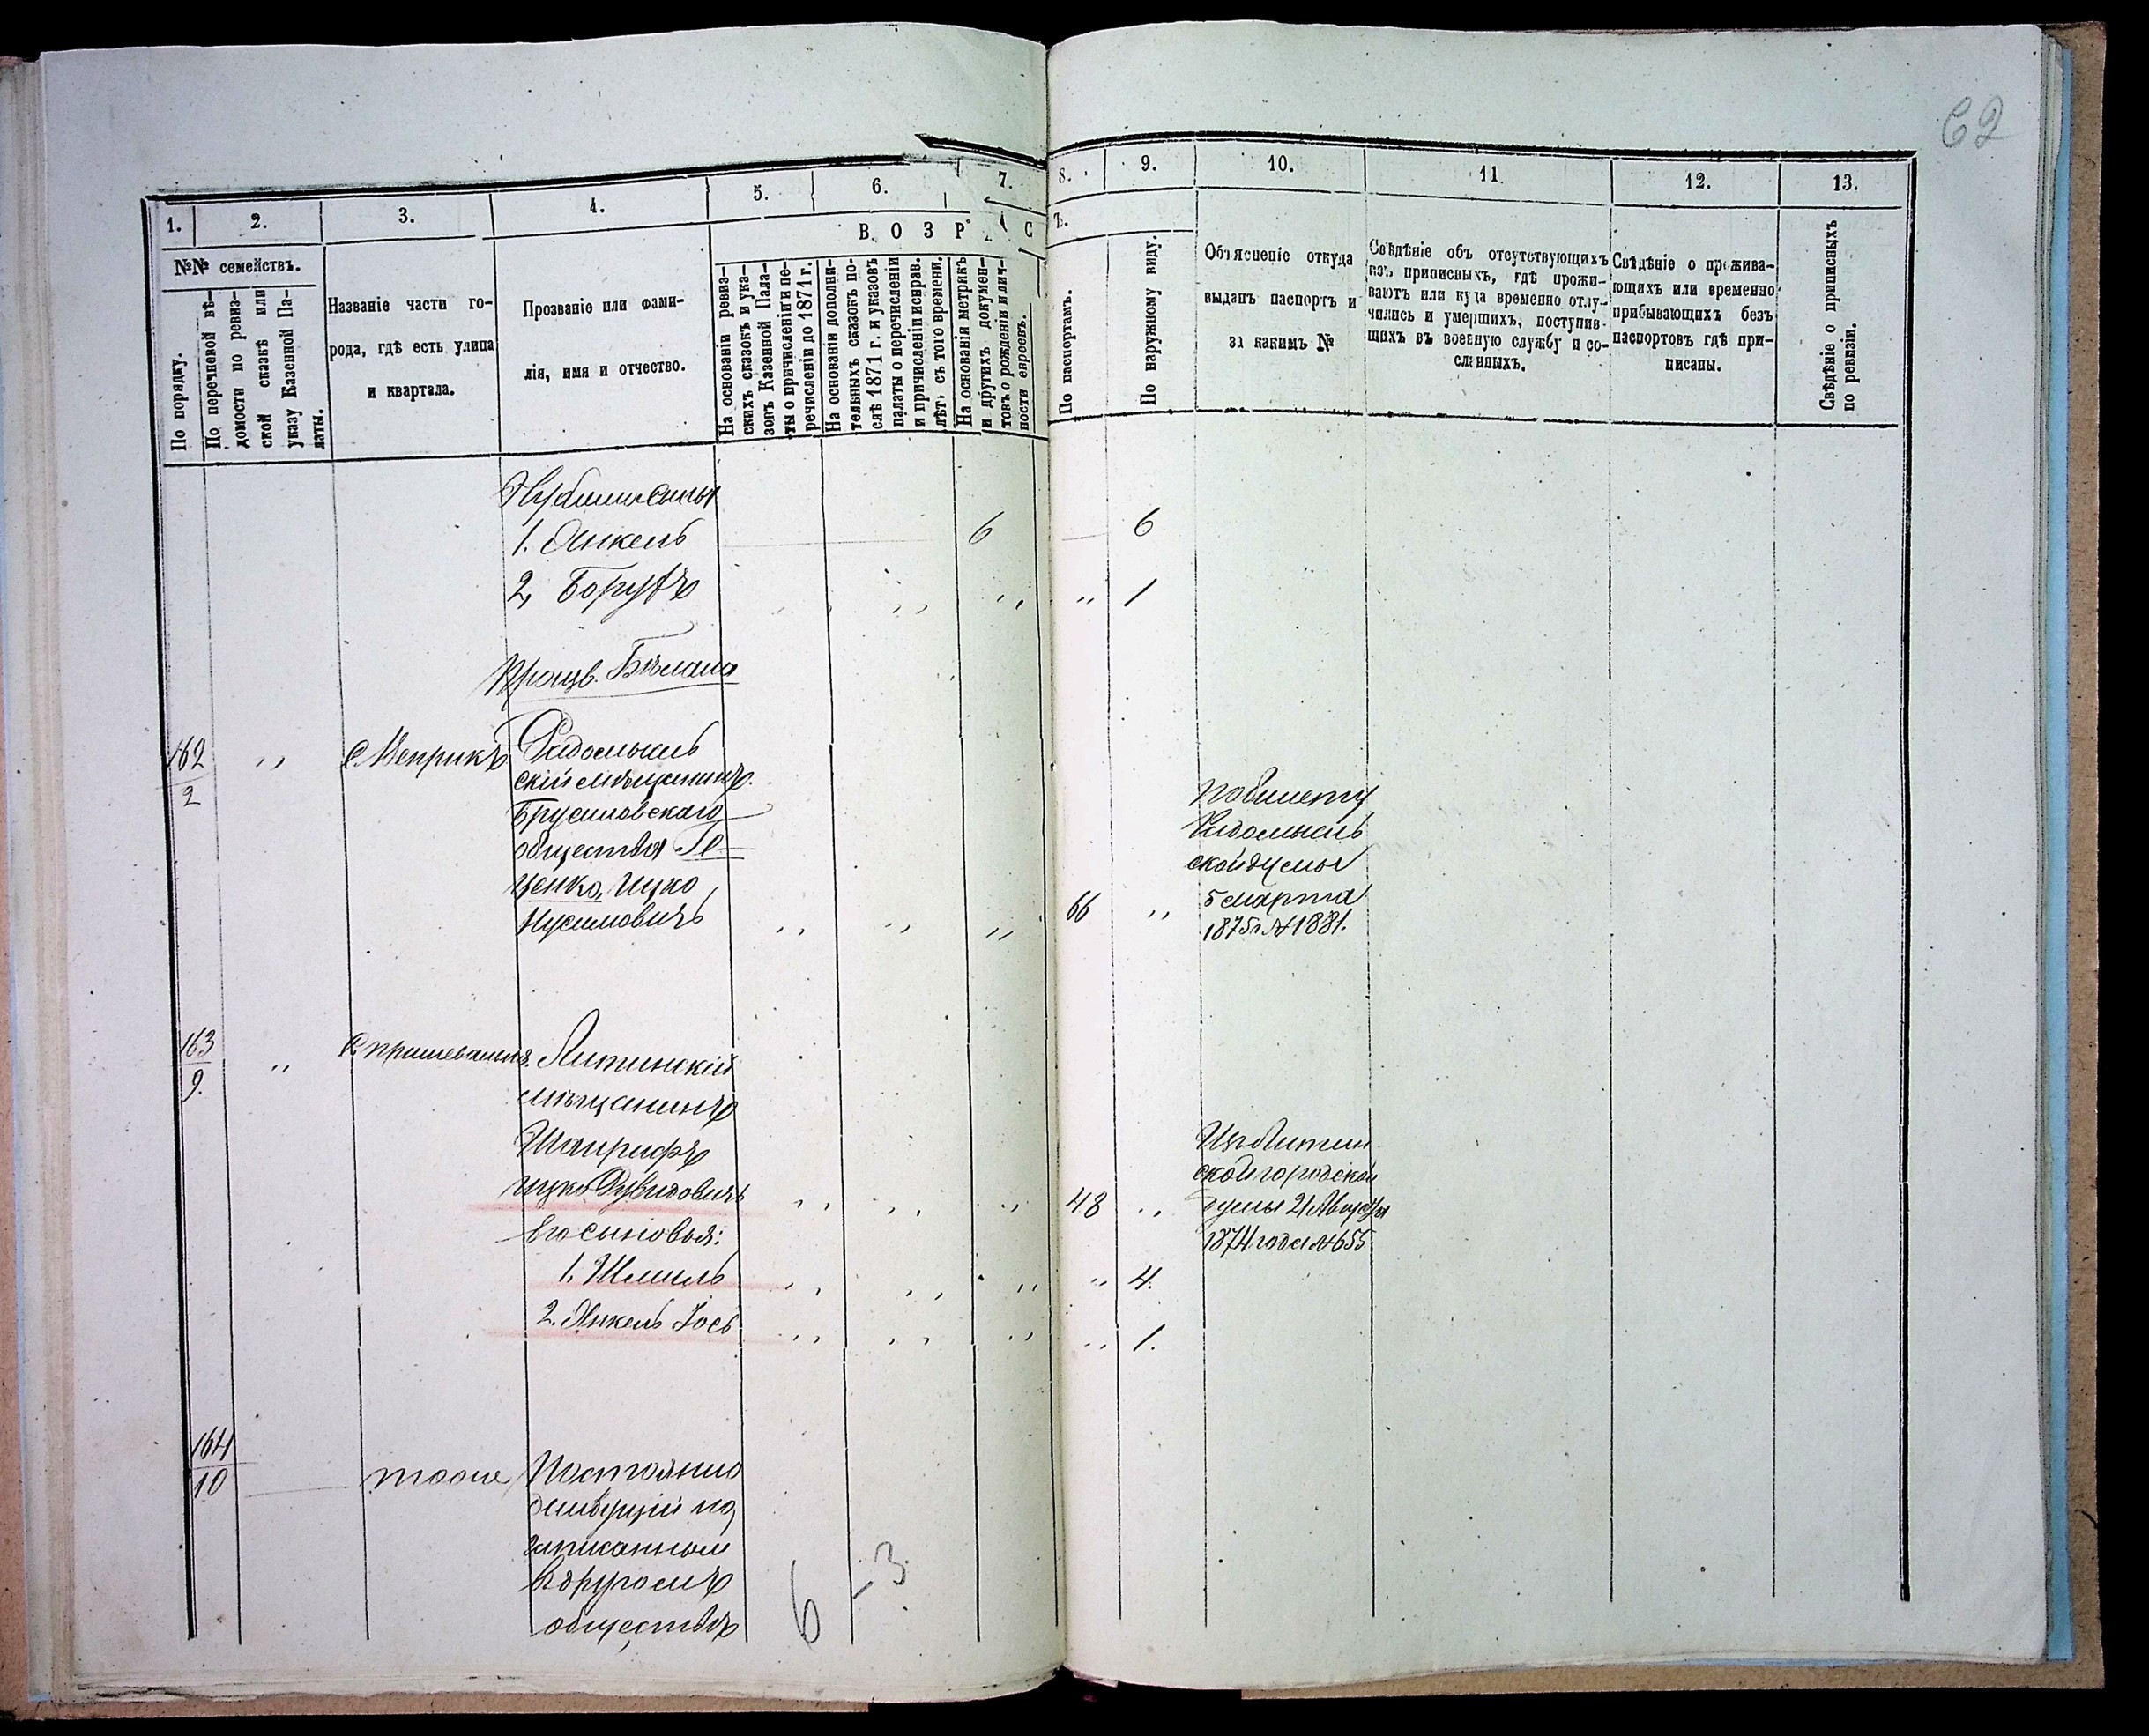 62
1.
2.
3.
4.
5.
6.
7.
8.
9.
10.
11
12.
13.
ВОЗРАСТЪ.
№№ семействъ.
По порядку.
По перечневой вѣ-
домости по ревиз-
ской сказкѣ или
указу Казенной Па-
латы.
Названіе части го-
рода, гдѣ есть улица
и квартала.
Прозваніе или фами-
лія, имя и отчество.
На основаніи ревиз-
скихъ сказокъ и ука-
зовъ Казенной Пала-
ты о причисленіи и пе-
речисленіи до 1871 г.
На основаніи дополни-
тельныхъ сказокъ по-
слѣ 1871 г. и указовъ
палаты о перечисленіи
и причисленіи исправ.
лѣтъ съ того времени.
На основаніи метрикъ
и другихъ докумен-
товъ о рожденіи и лич-
ности евреевъ.
По паспортамъ.
По наружному виду.
Объясненіе откуда
выданъ паспортъ и
за какимъ №
Свѣдѣніе объ отсутствующихъ
изъ приписныхъ, гдѣ прожи-
ваютъ или куда временно отлу-
чились и умершихъ, поступив-
шихъ въ военную службу и со-
сланныхъ.
Свѣдѣніе о прожива-
ющихъ или временно
прибывающихъ безъ
паспортовъ гдѣ при-
писаны.
Свѣдѣніе о приписныхъ
по ревизіи.
сыны
1. Янкель 6 6
2, Борухъ " " " 1
162
2
" с. Веприкъ Радомысль
скій мѣщанинъ
Брусиловскаго
общества Ге-
ценко, Ицко
Нусимовичъ " " " 66 "
По билету
Радомысль
ской думы
5 марта
1875 г. №1881.
163
9.
" Литинскій
мѣщанинъ
Ицко Дувидовичъ " " " 48 "
Его сыновья:
1. Шмиль " " " " 4.
2. Янкель Іось " " " " 1.
Изъ Литин
ской городской
думы 21 Августа
1874 года №655
164
10
тоже Постоянно
живущій но
записанный
въ другомъ
обществѣ
6 – 3